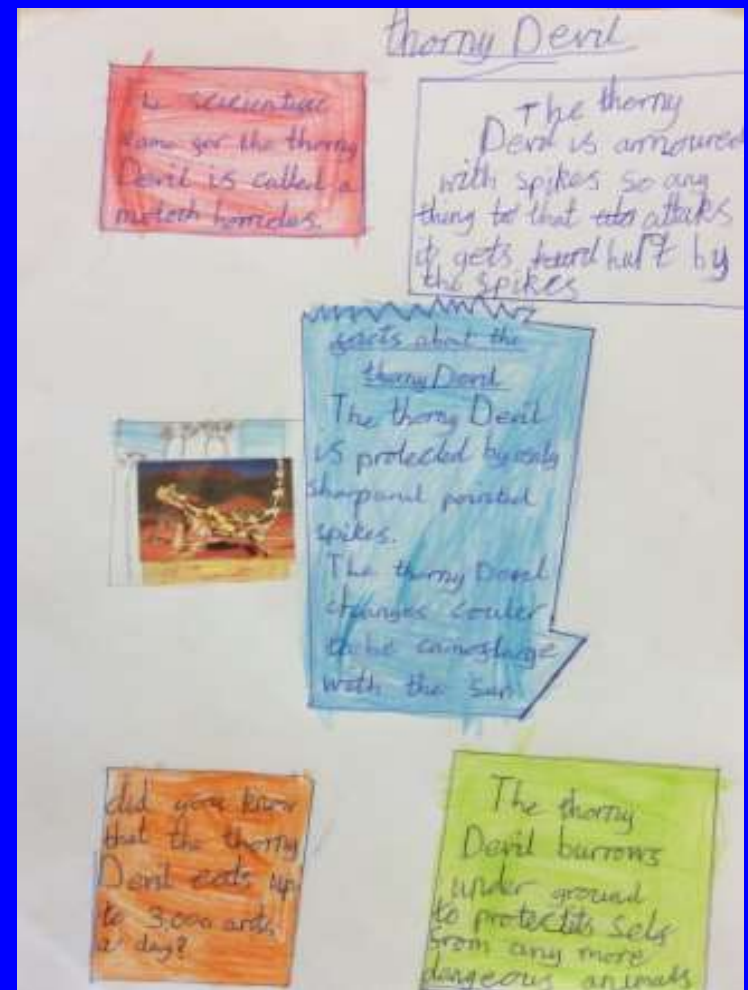 thorny Devil
scientific
name for the thorny
Devil is called a
moloch horridus.
The thorny
Devil is armoured
with spikes so any
thing to that attaks
it gets hurt by
the spikes
facts about the
thorny Devil
The thorny Devil
is protected by
sharp and pointed
spikes.
The thorny Devil
changes couler
to be camoflarge
with the sun
did you know
that the thorny
Devil eats up
to 3,000 ants
a day?
The thorny
Devil burrows
under ground
to protect its self
from any more
dangeous animals